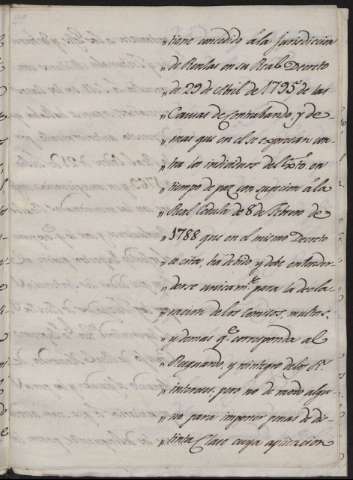 "tiene concedido á la Jurisdiccion
"de Rentas en su Real Decreto
"de 29 de Abril de 1795 de las
"Causas de Contrabando, y de
"mas que en el se expresan con
"tra los individuos del Exto. en
"tiempo de paz con sujecion a la
"Real Cedula de 8 de Febrero de
"1788 que en el mismo Decreto
"se cita, ha debido y debe entender
"derse unicamte. para la decla
"racion de los Comisos, multas,
"y demas qe. corresponda al
"Resguardo, y reintegro de los Rs.
"intereses, pero no de modo algu
"no para imponer penas de dis
"tinta Clase cuya aplicacion